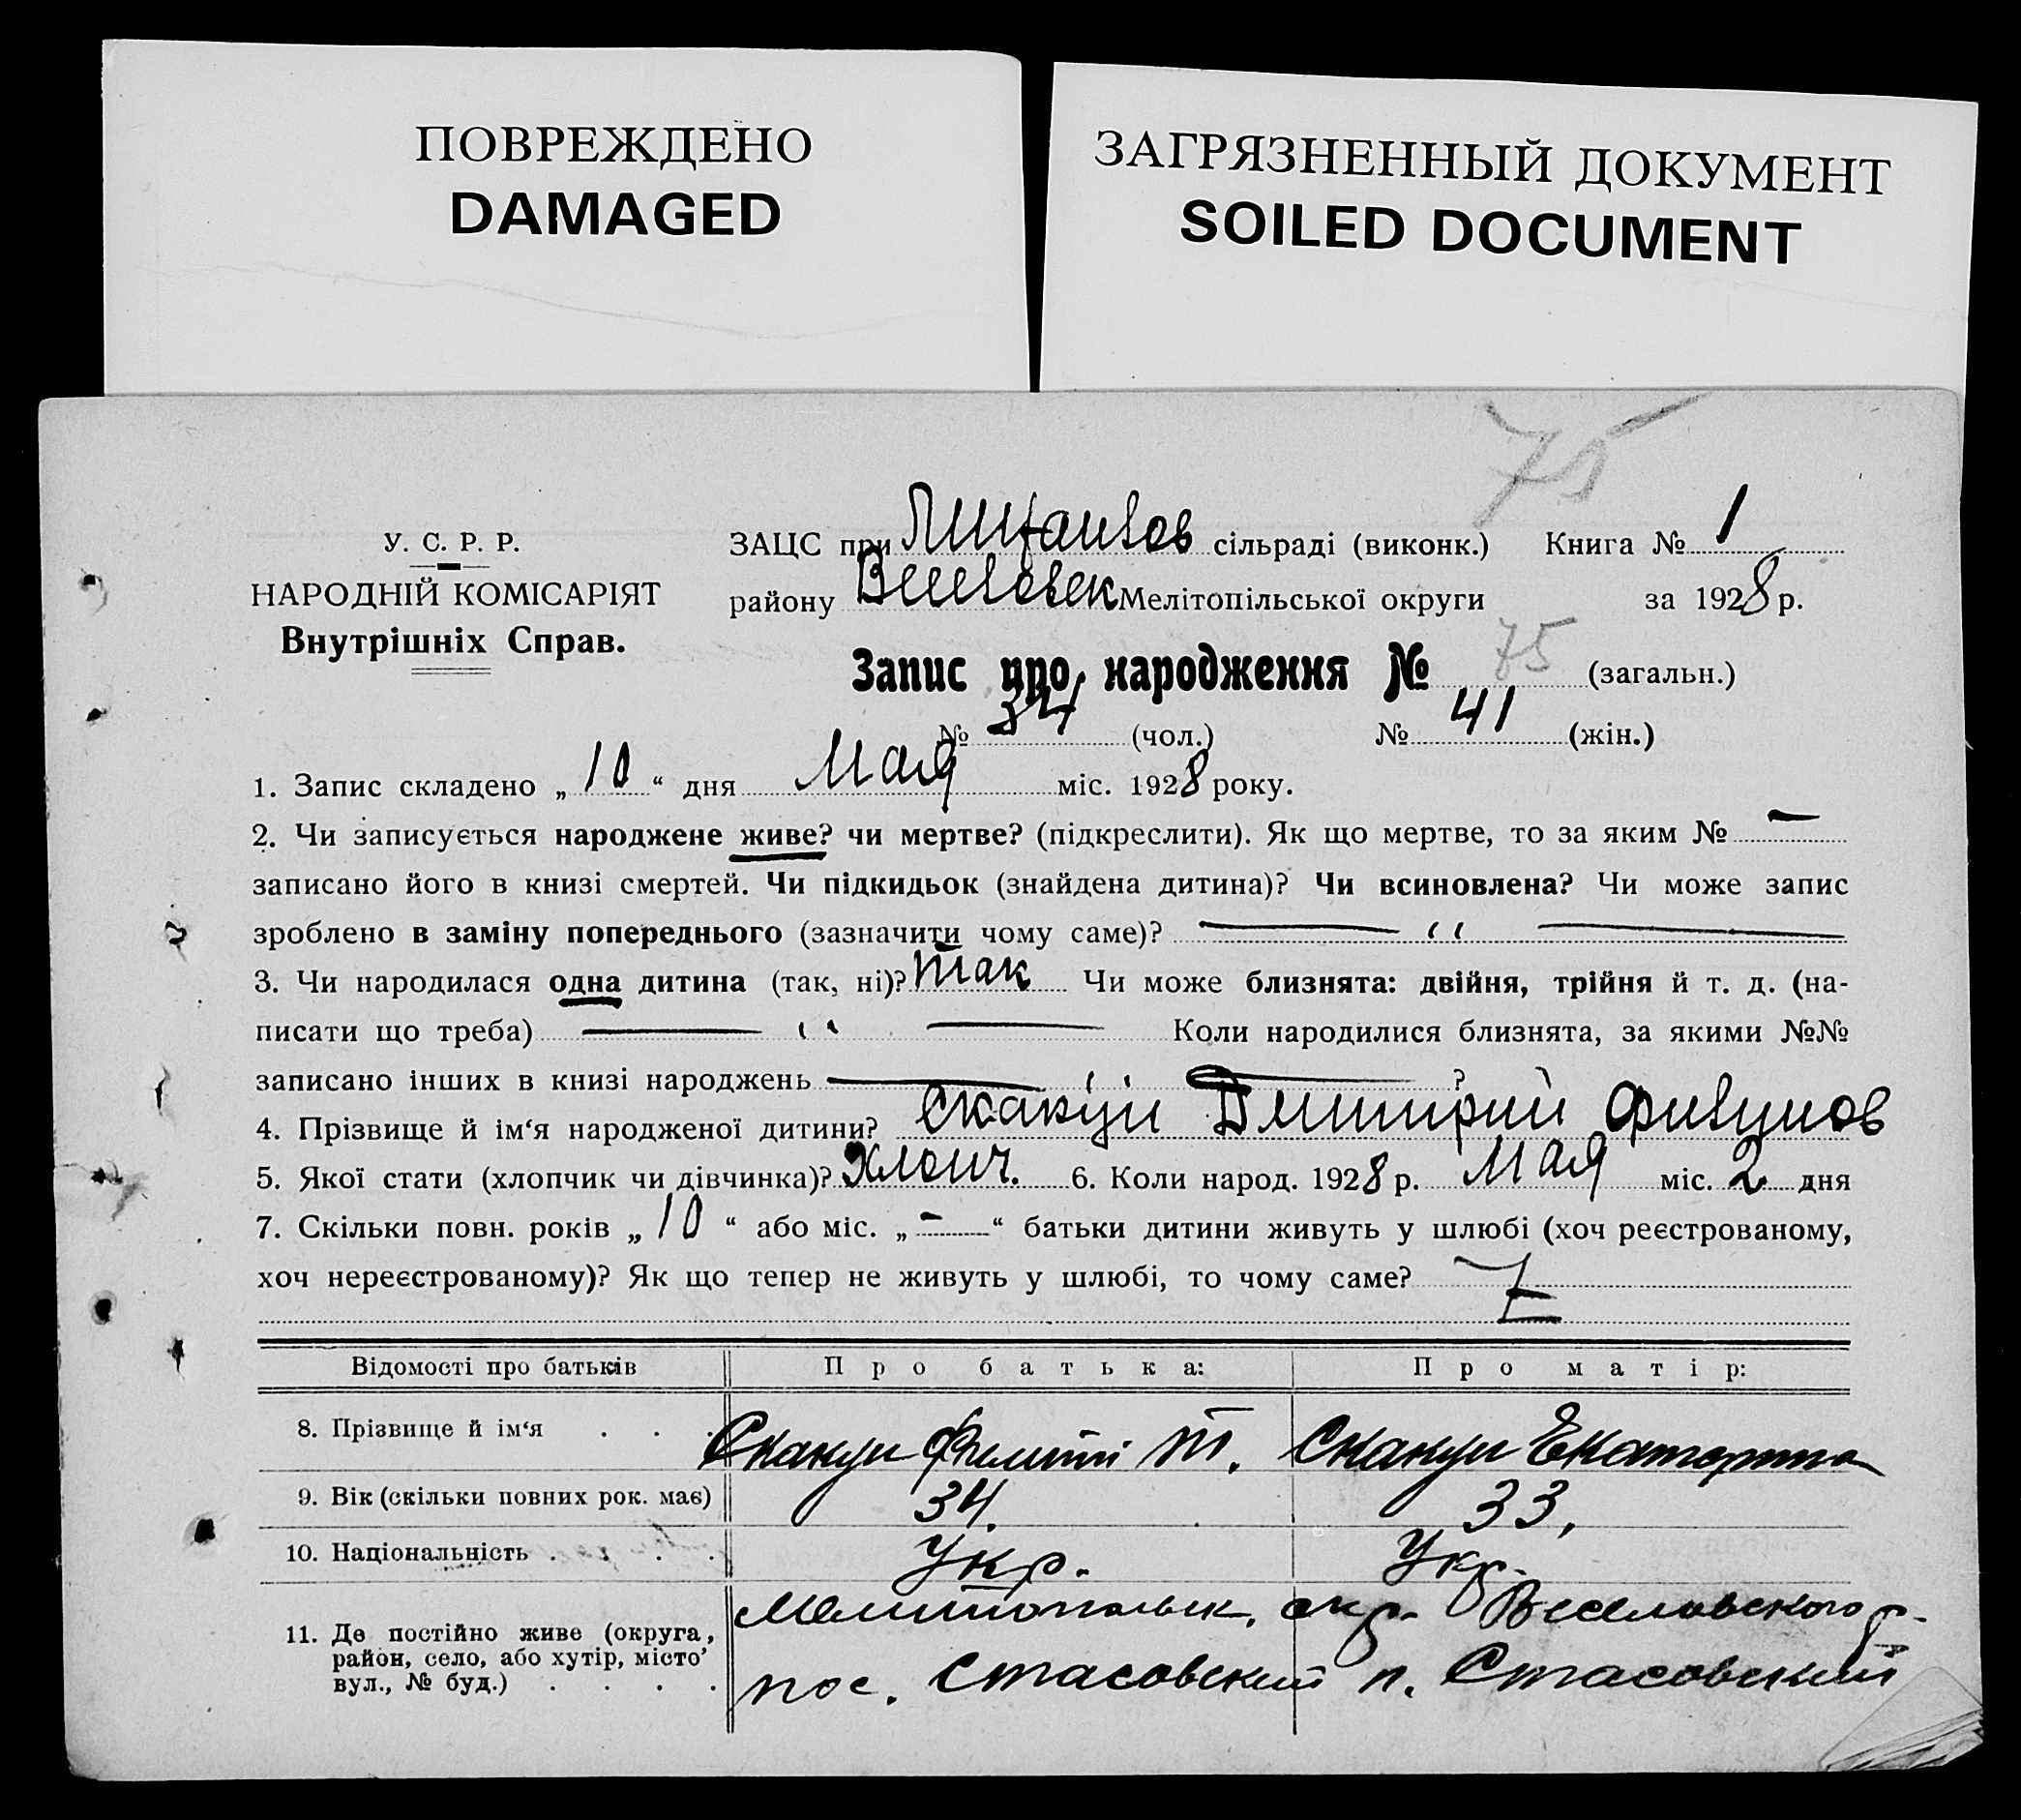 ПОВРЕЖДЕНО
DAMAGED
ЗАГРЯЗНЕННЫЙ ДОКУМЕНТ
SOILED DOCUMENT
75
У. С. Р. Р.
НАРОДНІЙ КОМІСАРІЯТ
Внутрішніх Справ.
ЗАЦС при сільраді (виконк.) Книга № 1
району Веселовск Мелітопільської округи за 1928 р.
Запис про народження № 75 (загальн.)
№ 34 (чол.) № 41 (жін.)
1. Запис складено „ 10 “ дня Мая міс. 1928 року.
2. Чи записується народжене живе? чи мертве? (підкреслити). Як що мертве, то за яким № —
записано його в книзі смертей. Чи підкидьок (знайдена дитина)? Чи всиновлена? Чи може запис
зроблено в заміну попереднього (зазначити чому саме)? — ʻʻ —
3. Чи народилася одна дитина (так, ні)? так Чи може близнята: двійня, трійня й т. д. (на-
писати що треба) — ʻʻ — Коли народилися близнята, за якими №№
записано інших в книзі народжень — ʻʻ — ?
4. Прізвище й ім‘я народженої дитини? Скакун Дмитрий Филипов
5. Якої стати (хлопчик чи дівчинка)? хлопч. 6. Коли народ. 1928 р. Мая міс. 2 дня
7. Скільки повн. років „ 10 “ або міс. „ — “ батьки дитини живуть у шлюбі (хоч реєстрованому,
хоч нереєстрованому)? Як що тепер не живуть у шлюбі, то чому саме?
Відомості про батьків Про батька: Про матір:
8. Прізвище й ім‘я . . . Скакун Филипп Т. Скакун Екатерина
9. Вік (скільки повних рок. має) 34. 33,
10. Національність . . . . Укр. Укр.
11. Де постійно живе (округа, район, село, або хутір, місто’ вул., № буд.) . . . .
Мелитопольск. окр. Веселовского р.
пос. Стасовский п. Стасовский